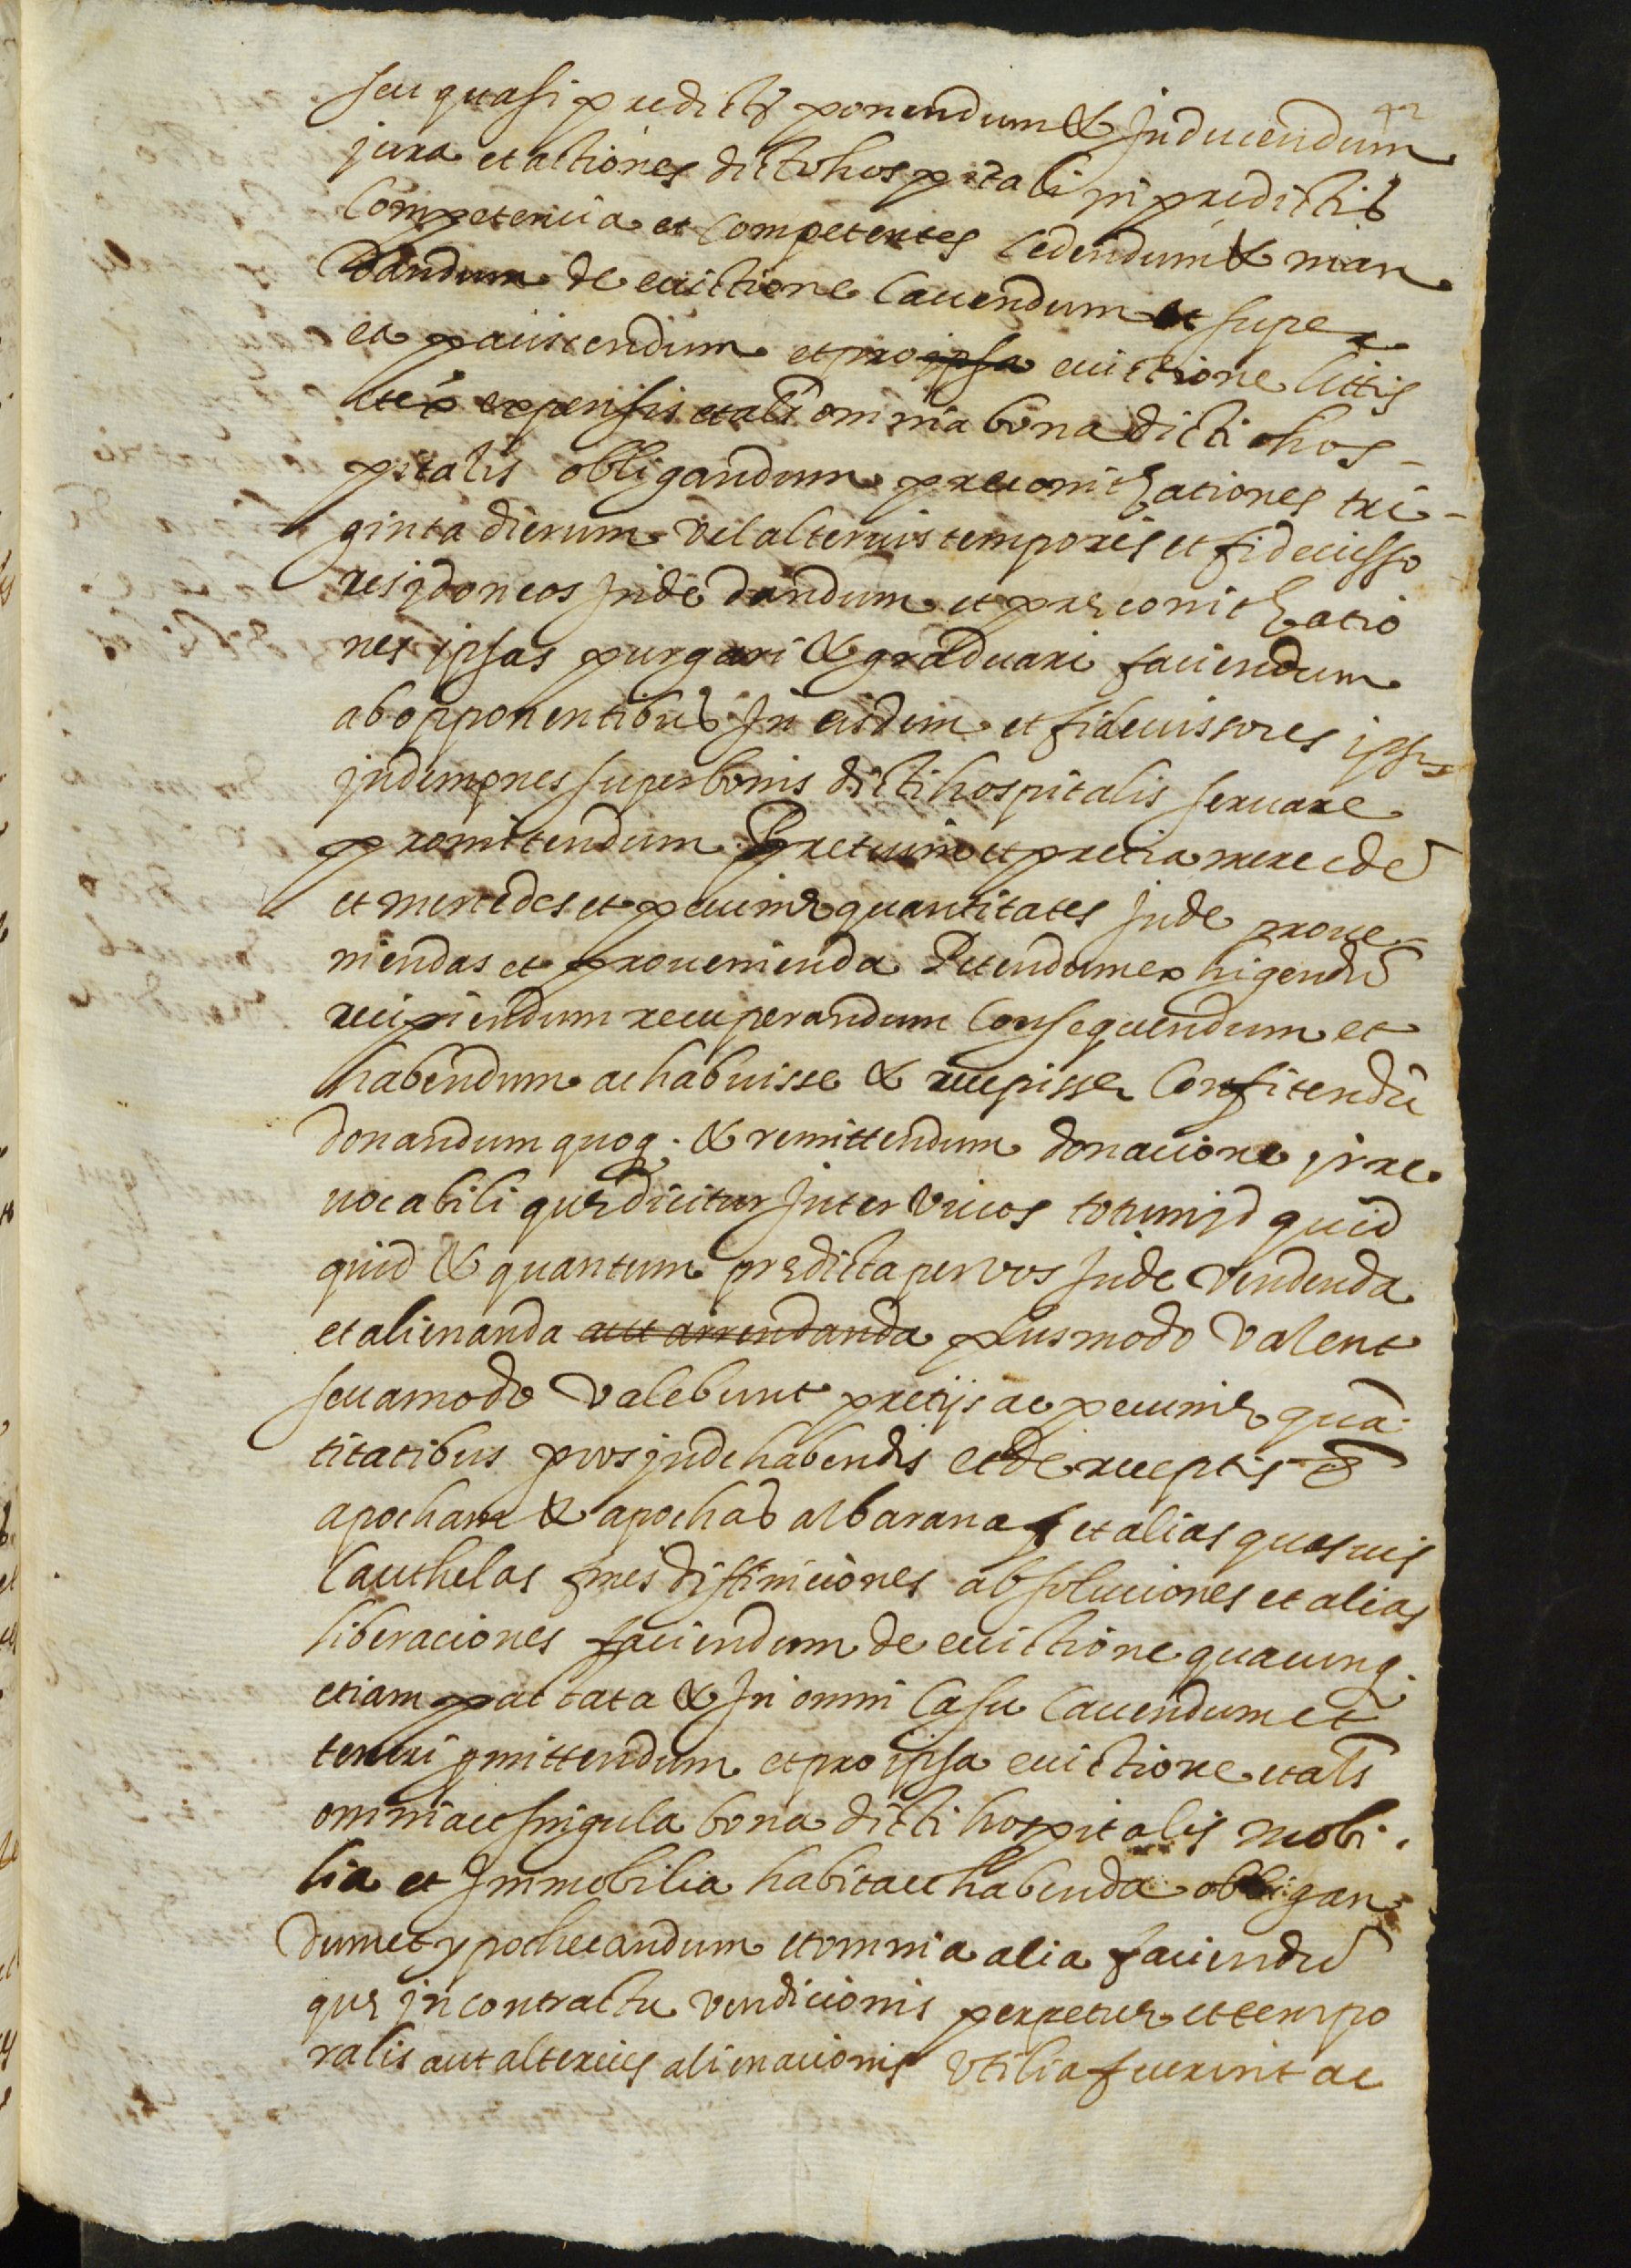 seu quasi predictis ponendum & Inducendum
jura et actiones dicto hospitali in predictis
Competencia et Competentes Cedendum & man
dandum de euictione Cauendum et super
ea paciscendum et pro ipsa euictione littis
expensis et als omnia bona dicti hos-
pitalis obligandum preconitzationes tri-
ginta dierum vel alterius temporis et fideiusso
res ydoneos Inde dandum et preconitzatio
nes ipsas purgari & graduari faciendum
ab opponentibus In eisdem et fideiussores ipsos
indempnes super bonis dicti hospitalis seruare
promittendum Pretium et precia mercedē
et mercedes et pecunie quantitates Inde proue-
niendas et prouenienda Petendum exhigendū
recipiendum recuperandum Consequendum et
habendum ac habuisse & recepisse Confitendū
donandum quoq. & remittendum donacione irre
uocabili que dicitur Inter viuos totum id quid
quid & quantum predicta per vos Inde vendenda
et alienanda aut arrendanda plus modo valent
seu amodo valebunt pretijs ac pecunie quā-
titatibus p vos inde habendis et de receptis
apocham & apochas albarana et alias quasuis
Cauthelas fines diffiniciones absoluciones et alias
liberaciones faciendum de euictione quacunq.
etiam pactata & In omni Casu Cauendum et
teneri pmittendum et pro ipsa euictione et als
omnia et singula bona dicti hospitalis mobi-
lia et Immobilia habita et habenda obligan
dum et ypothecandum et omnia alia faciendū
que in contractu vendicionis perpetue et tempo
ralis aut alterius alienacionis vtilia fuerint ac